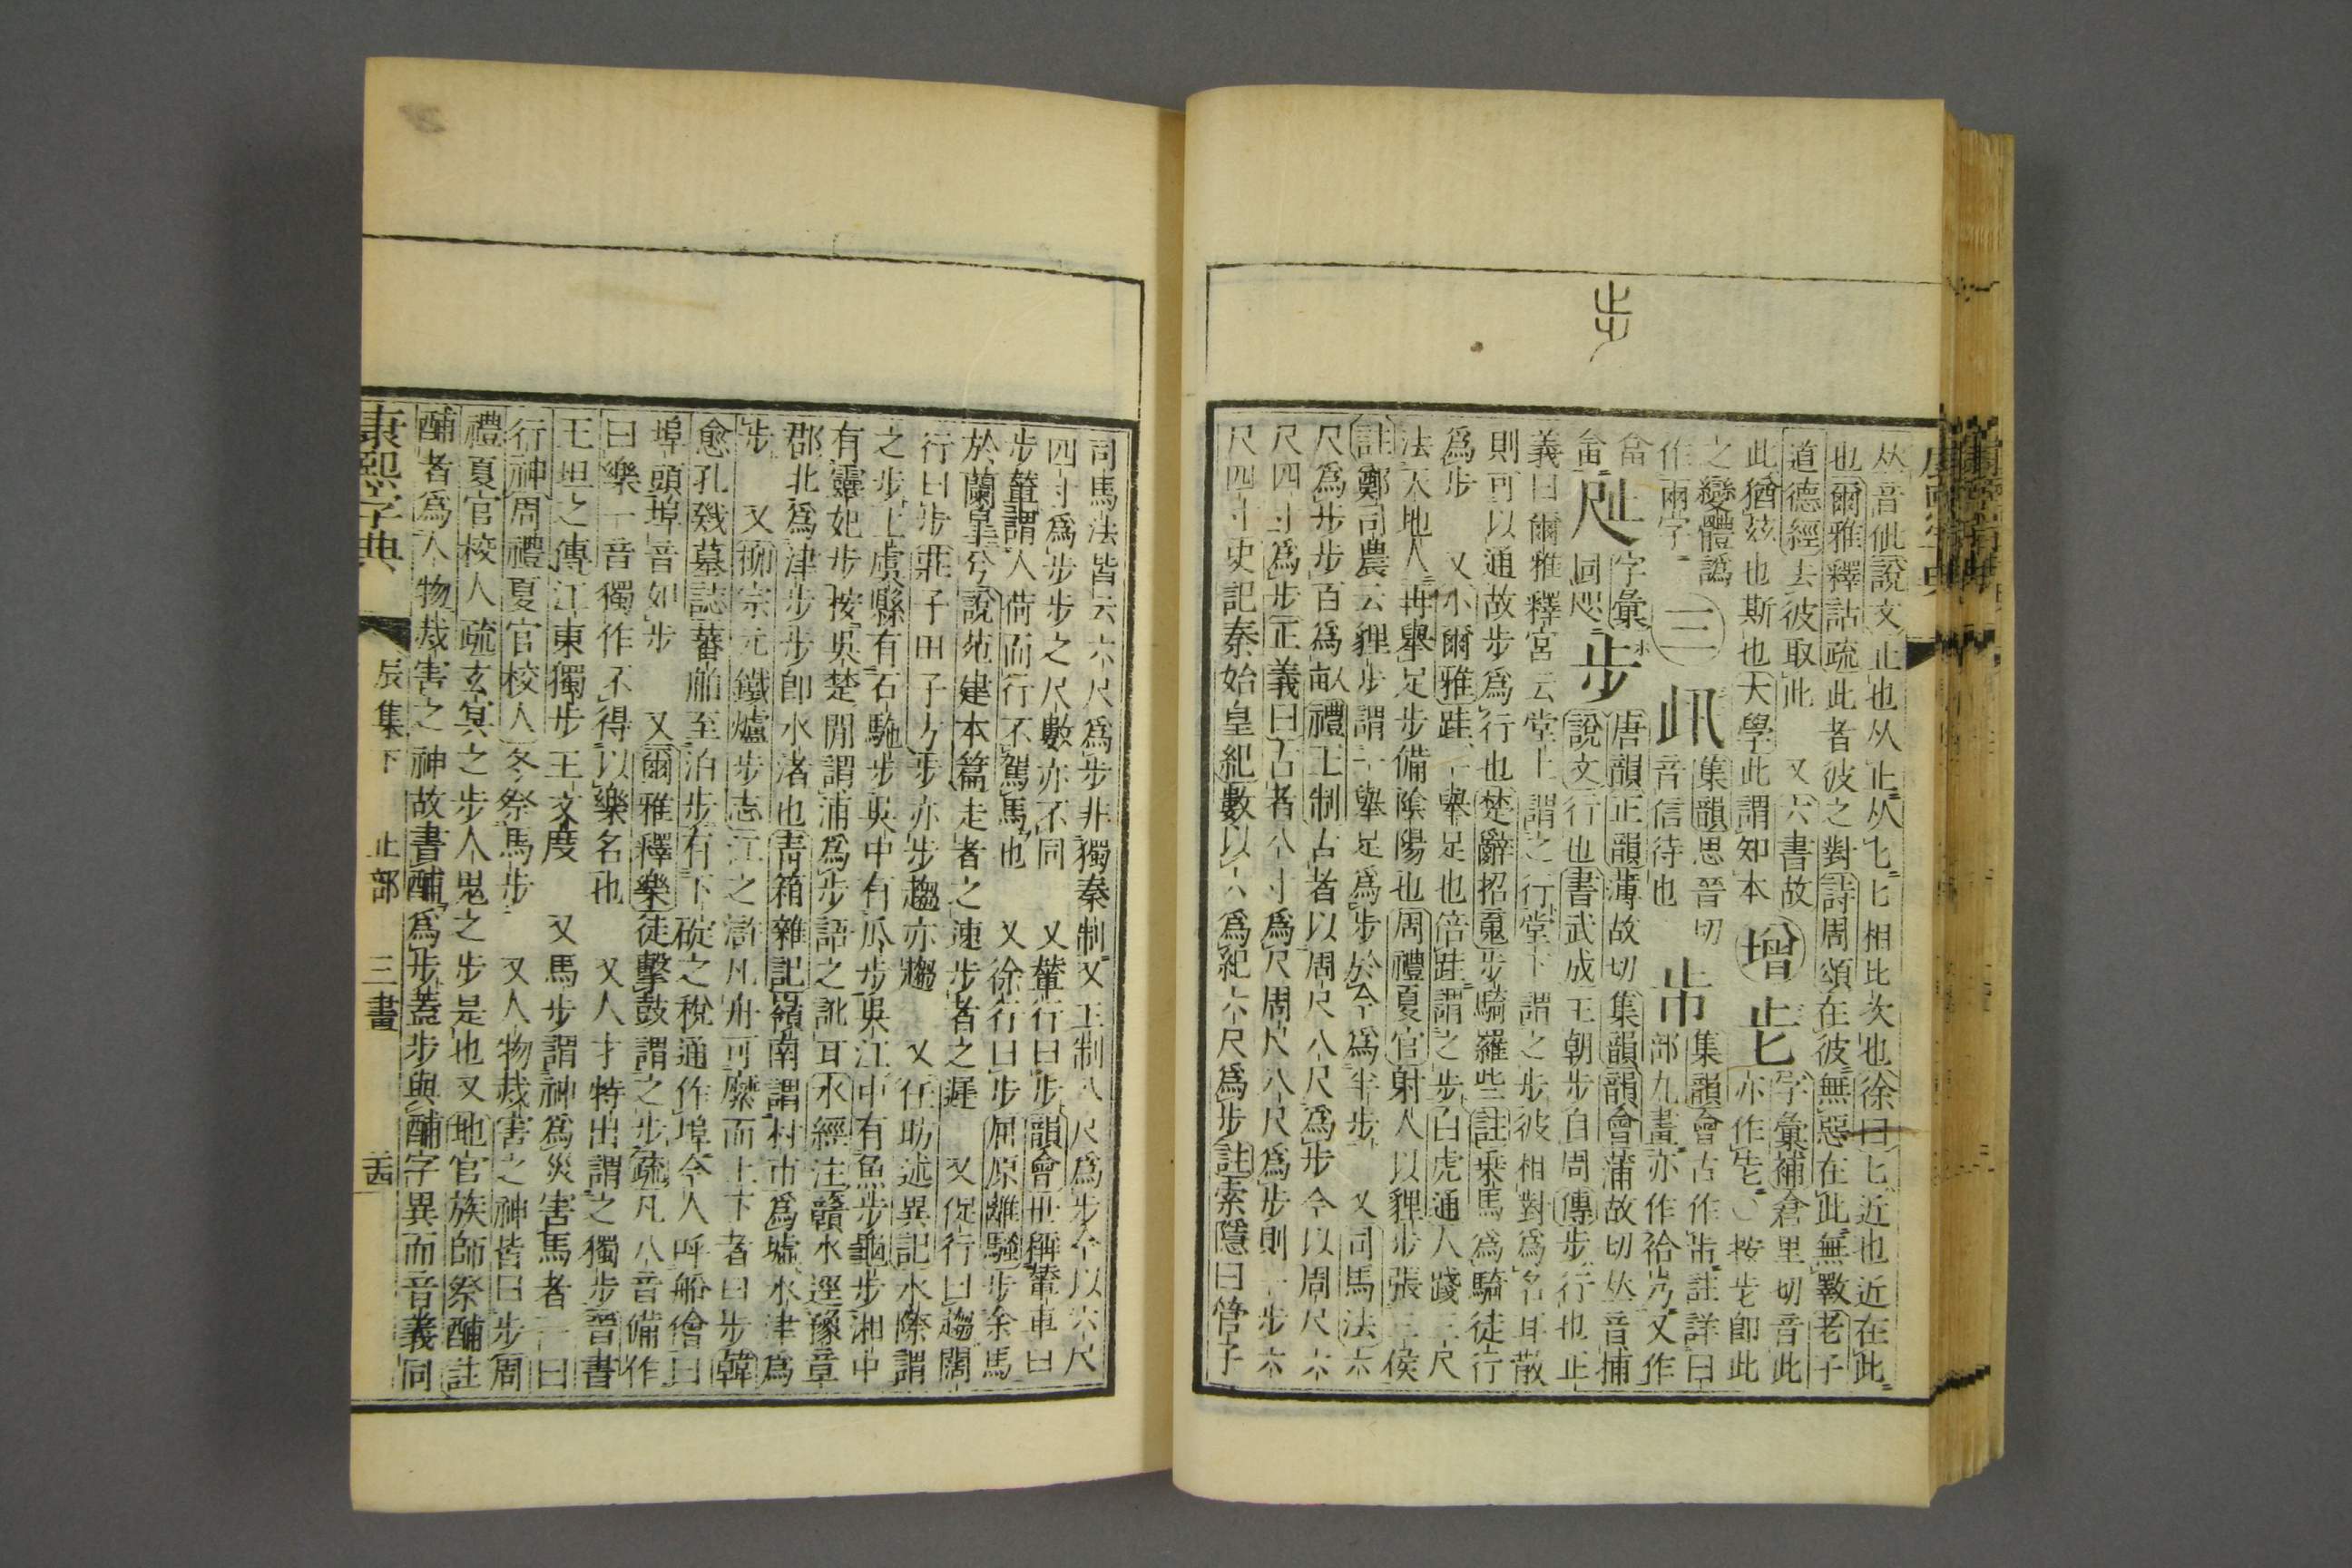 步
𠀤音佌說文止也从止从匕匕相比次也徐曰匕近也近在此
也爾雅釋詁疏此者彼之對詩周頌在彼無惡在此無斁老子
道德經去彼取此 又六書故
此猶茲也斯也大學此謂知本 增 字彙補倉里切音此
亦作㐌按㐌卽此
之變體譌
作兩字 三 集韻思晉切
音信待也 集韻會古作歬註詳曰
部九畫亦作㭘屶又作
畣 字彙
畣 同咫 步 唐韻正韻薄故切集韻韻會蒲故切𠀤音捕
說文行也書武成王朝步自周傳步行也正
義曰爾雅釋宮云堂上謂之行堂下謂之步彼相對爲名耳散
則可以通故步爲行也楚辭招䰟步騎羅些註乘馬爲騎徒行
爲步 又小爾雅跬一舉足也倍跬謂之步白虎通人踐三尺
法天地人再舉足步備隂陽也周禮夏官射人以貍步張三侯
註鄭司農云貍步謂一舉足爲步於今爲半步 又司馬法六
尺爲步步百爲畝禮王制古者以周尺八尺爲步今以周尺六
尺四寸爲步正義曰古者八寸爲尺周尺八尺爲步則一步六
尺四寸史記秦始皇紀數以六爲紀六尺爲步註索隱曰管子
司馬法皆云六尺爲步非獨秦制又王制八尺爲步今以六尺
四寸爲步步之尺數亦不同 又輦行曰步韻會世稱輦車曰
步輦謂人荷而行不駕馬也 又徐行曰步屈原離騷步余馬
於蘭皋兮說苑建本篇走者之速步者之遲 又促行曰趨闊
行曰步莊子田子方步亦步趨亦趨 又任昉述異記水際謂
之步上虞縣有石駞步吳中有瓜步吳江中有魚步龜步湘中
有靈妃步按吳楚閒謂浦爲步語之訛耳水經注贛水逕豫章
郡北爲津步步卽水渚也靑箱雜記嶺南謂村市爲墟水津爲
步 又柳宗元鐵爐步志江之滸凡舟可縻而上下者曰步韓
愈孔戣墓誌蕃舶至泊步有下碇之稅通作埠今人呼船儈曰
埠頭埠音如步 又爾雅釋樂徒擊鼓謂之步疏凡八音備作
曰樂一音獨作不得以樂名也 又人才特出謂之獨步晉書
王坦之傳江東獨步王文度 又馬步謂神爲災害馬者一曰
行神周禮夏官校人冬祭馬步 又人物烖害之神皆曰步周
禮夏官校人疏玄冥之步人鬼之步是也又地官族師祭酺註
酺者爲人物烖害之神故書酺爲步蓋步與酺字異而音義同
康熙字典 辰集下 止部 三畫 十四